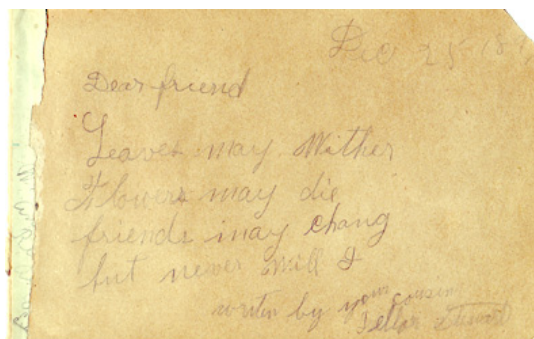 Dec 25 18
Dear friend
Leaves may Wither
Flowers may die
friends may chang
but never will I
written by your cousin
Stewart